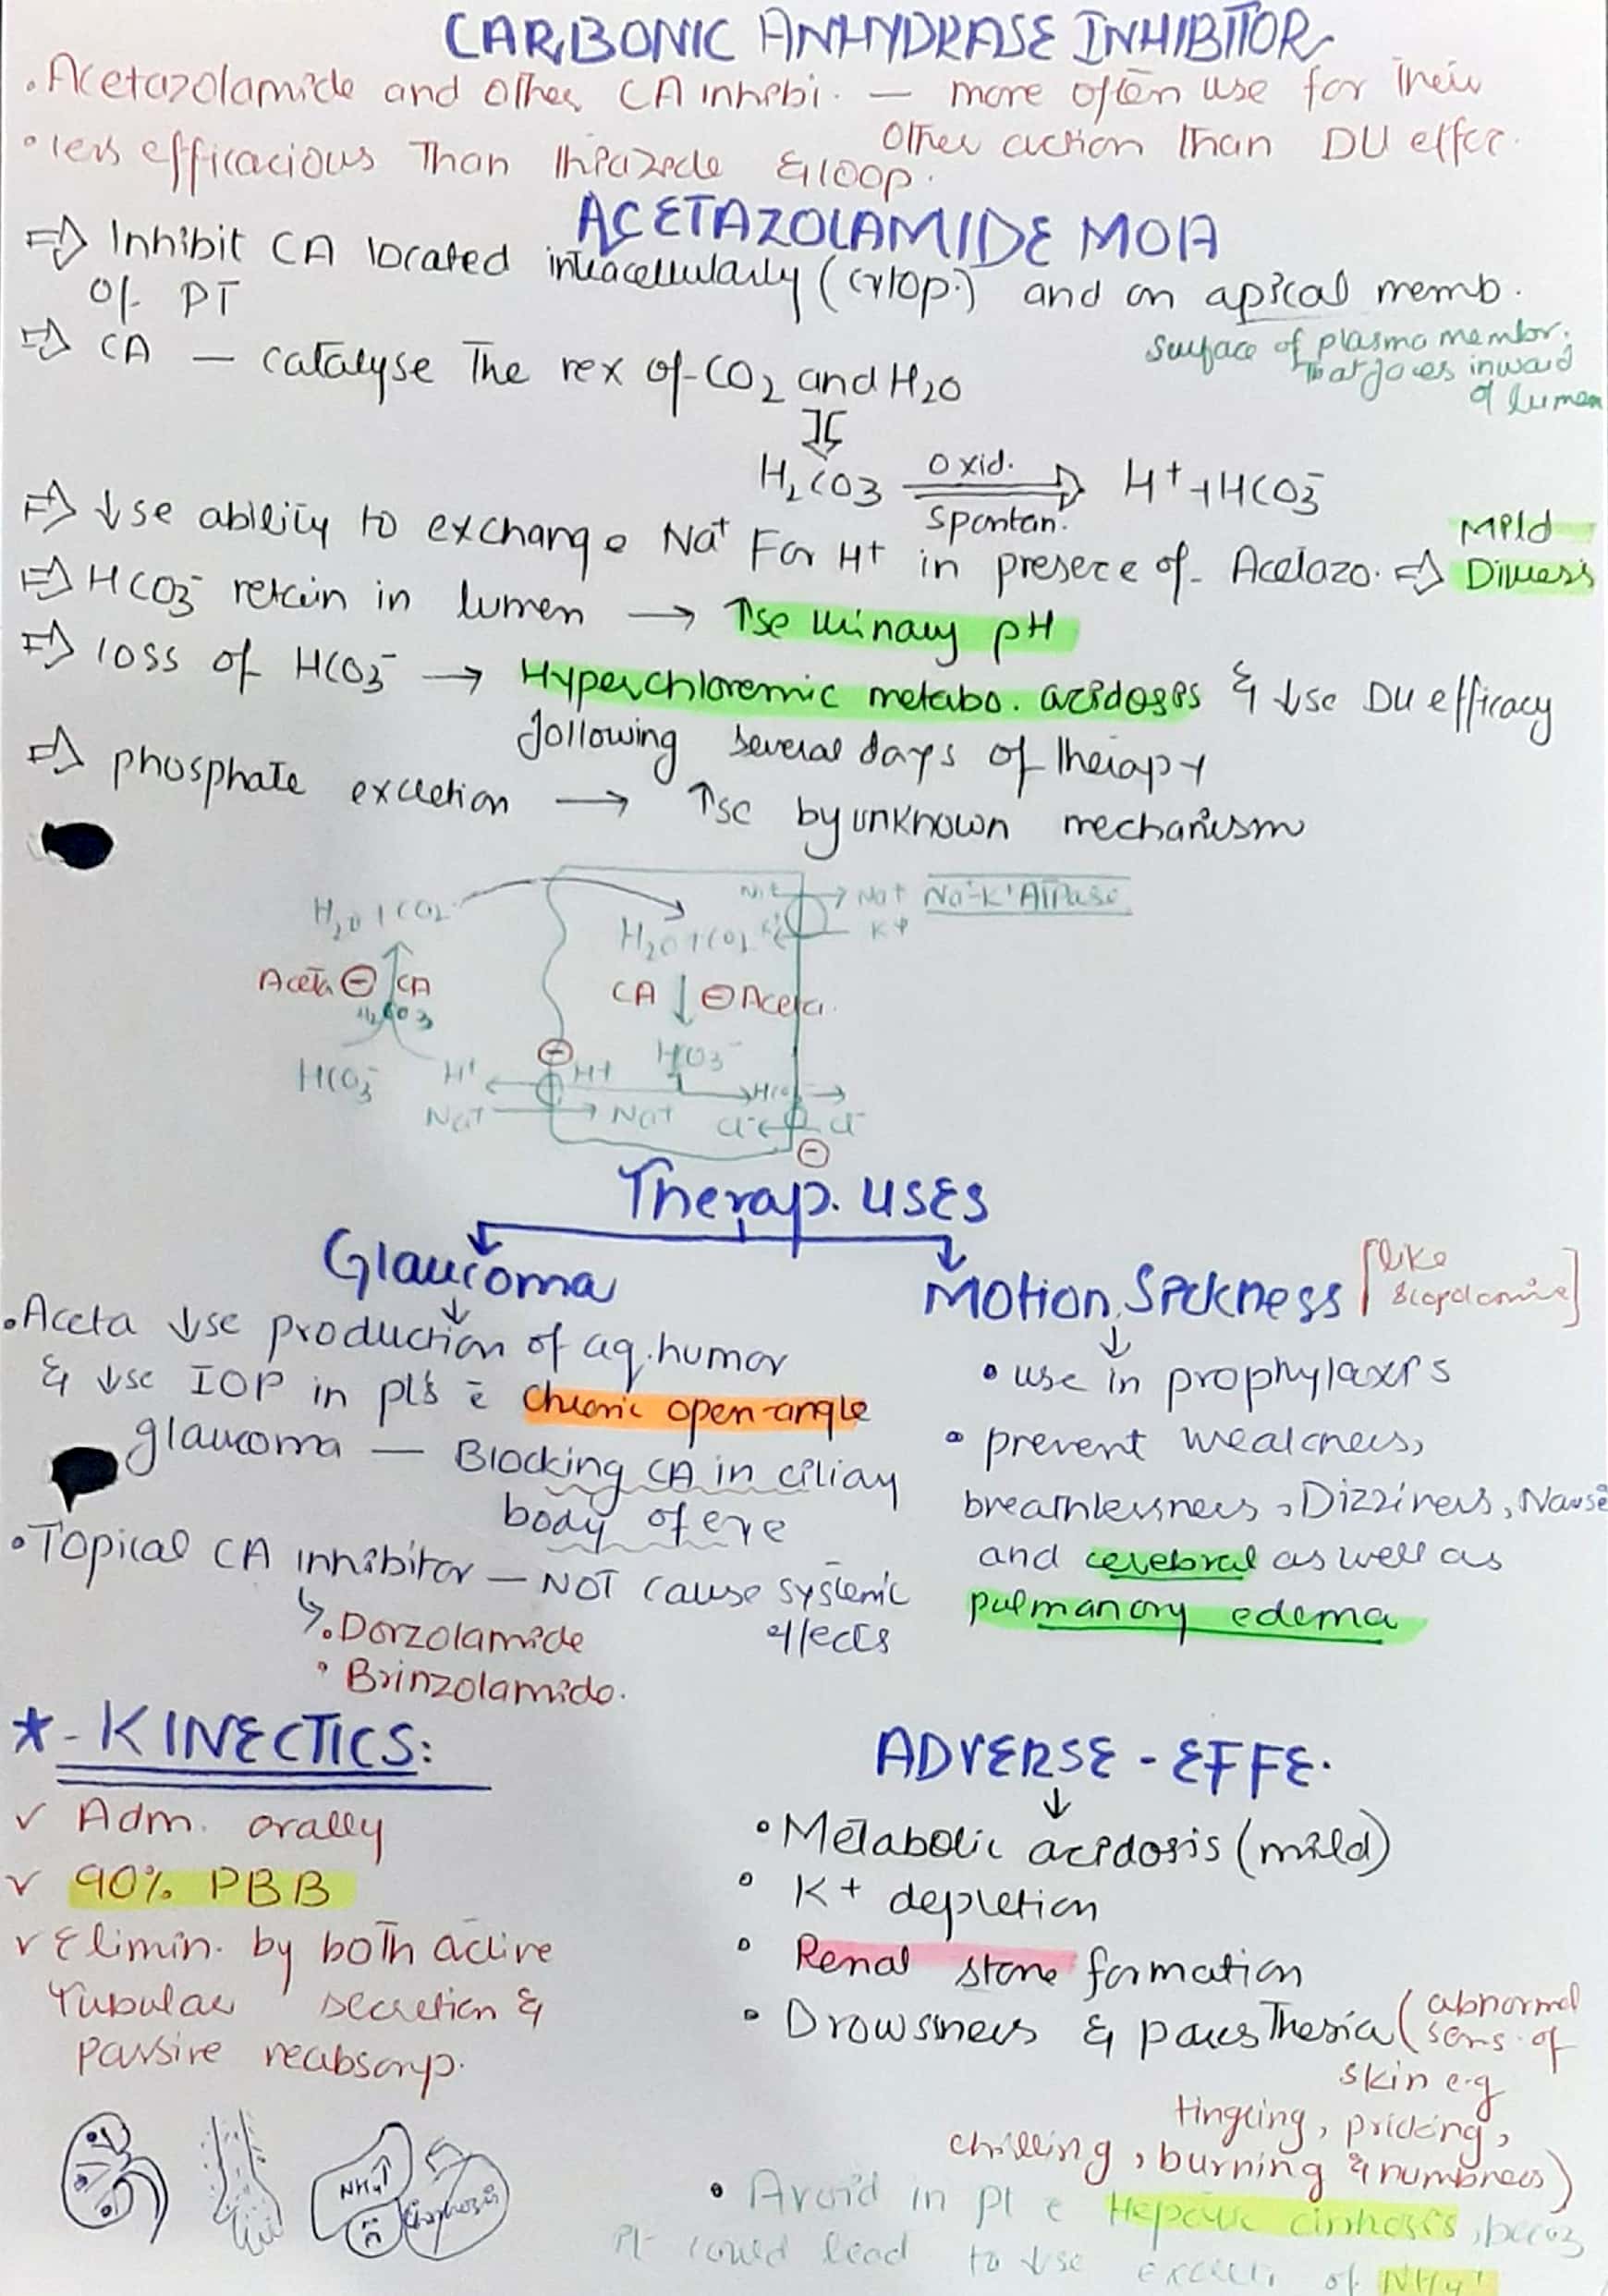 CARBONIC ANHYDRASE INHIBITOR
• Acetazolamide and other CA inhibi. — more often use for their
other action than DU effec.
• less efficacious than thiazide & loop.
ACETAZOLAMIDE MOA
⇒ Inhibit CA located intracellularly (cytop.) and on apical memb.
of PT
surface of plasma membr.
that goes inward
of lumen
⇒ CA — catalyse the rex of CO2 and H2O
H2CO3 oxid. spontan. ⇒ H+ + HCO3-
⇒ ↓se ability to exchange Na+ For H+ in presece of Acetazo. ⇒ Mild Diuresis
⇒ HCO3- retain in lumen → ↑se urinary pH
⇒ loss of HCO3- → Hyperchloremic metabo. acidosis & ↓se DU efficacy
following several days of therapy
⇒ phosphate excretion → ↑se by unknown mechanism
H2O + CO2
H2O + CO2
Na+ → Na+ Na+-K+ ATPase
K+ K+
Aceta ⊖ CA
CA ↓ ⊖ Aceta.
H2CO3
HCO3-
HCO3-
H+ H+
HCO3- →
Na+ → Na+
Cl- Cl-
⊖
⊖
Therap. USES
Glaucoma
• Aceta ↓se production of aq. humor
& ↓se IOP in pt's c̄ chronic open-angle
glaucoma — Blocking CA in ciliary
body of eye
• Topical CA inhibitor — NOT cause systemic
effects
↳ • Dorzolamide
• Brinzolamide.
Motion Sickness [like scopolamine]
• use in prophylaxis
• prevent weakness,
breathlessness, Dizziness, Nause
and cerebral as well as
pulmanory edema
* - KINECTICS:
✓ Adm. orally
✓ 90% PBB
✓ Elimin. by both active
Tubular secretion &
passive reabsorp.
NH4↑
Cirrhosis
ADVERSE - EFFE.
• Metabolic acidosis (mild)
• K+ depletion
• Renal stone formation
• Drowsiness & paresthesia (abnormal
sens. of
skin e.g
tingling, pricking,
chilling, burning & numbness)
• Avoid in pt c̄ Hepatic cirrhosis, becoz
it could lead to ↓se excreti. of NH4+